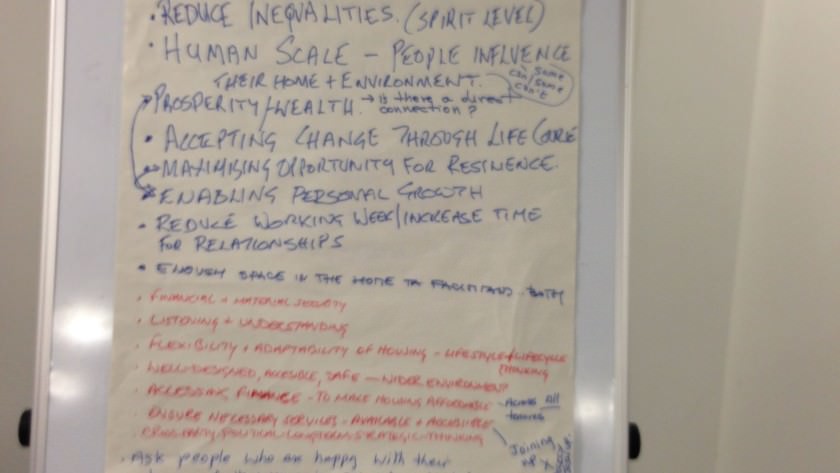 • REDUCE INEQUALITIES. (SPIRIT LEVEL)
• HUMAN SCALE – PEOPLE INFLUENCE
THEIR HOME + ENVIRONMENT.
can/some
some
can't
PROSPERITY/WEALTH. → is there a direct
connection?
• ACCEPTING CHANGE THROUGH LIFE
• MAXIMISING OPPORTUNITY FOR RESINENCE.
• ENABLING PERSONAL GROWTH
• REDUCE WORKING WEEK/INCREASE TIME
FOR RELATIONSHIPS
• ENOUGH SPACE IN THE HOME TO
• FINANCIAL + MATERIAL SECURITY
• LISTENING + UNDERSTANDING
• FLEXIBILITY + ADAPTABILITY OF HOUSING – LIFESTYLE/LIFECYCLE
THINKING
• WELL-DESIGNED, ACCESIBLE, SAFE – WIDER ENVIRONMENT
• ACCESSING FINANCE – TO MAKE HOUSING AFFORDABLE – Across all
tenures
• ENSURE NECESSARY SERVICES – AVAILABLE + ACCESSIBLE
• CROSS PARTY POLITICAL LONGTERM STRATEGIC THINKING
Joining
up
• Ask people who are happy with their